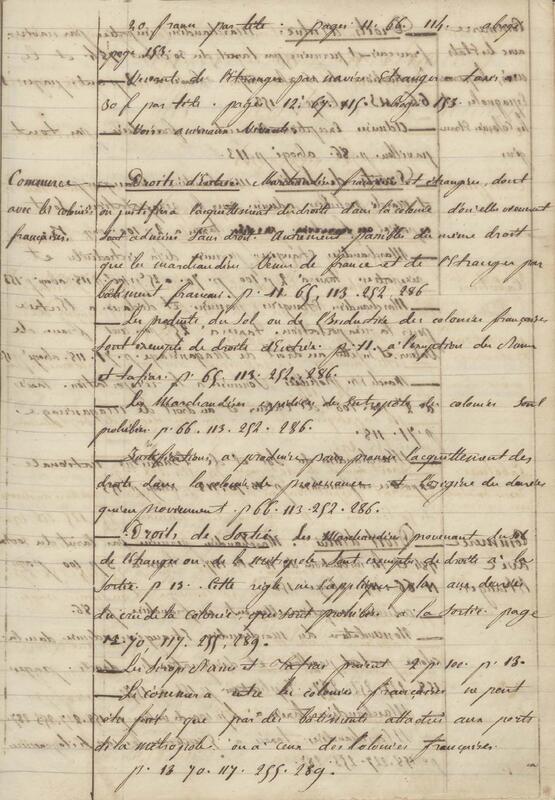 20 francs par tête. pages 11. 66. 114. abrogé
page 153.
— Venant de l'Etranger par navires Etranger taxe
30 f par tête. pages 12. 67. 115. abrogé 153.
— Voir animaux vivants.
Commerce
avec les colonies
françaises.
— Droits d'Entrée. Marchandises françaises et étrangères, dont
on justifiera l'acquittement des droits dans la colonie d'où elles viennent
sont admises sans droit. Autrement passibles du même droit
que les marchandises venues de france et de l'Etranger par
bâtiment français. p. 11. 65, 113. 252. 286
— Les produits du Sol ou de l'Industrie des colonies françaises
sont exempts de droits d'Entrée. p. 11. à l'exception des Rhums
et tafias. p. 65. 113. 252. 286.
— Les Marchandises expédiées des Entrepôts des colonies sont
prohibées p. 66. 113. 252. 286.
— Justifications à produire pour prouver l'acquittement des
droits dans la colonie de provenance et l'origine des denrées
qui en proviennent. p. 66. 113. 252. 286.
— Droits de Sortie. Les Marchandises provenant
de l'Etranger ou de la métropole sont exemptes de droits à la
Sortie. p. 13. Cette règle ne s'applique plus aux denrées
du cru de la colonie qui sont prohibées à la Sortie. page
13. 70. 117. 255, 289.
— Les Sirops, Rhums et Tafias paient 2 p. 100. p. 13.
— Le commerce entre les colonies françaises ne peut
être fait que par des bâtiments attachés aux ports
de la métropole ou à ceux des Colonies françaises.
p. 13. 70. 117. 255. 289.